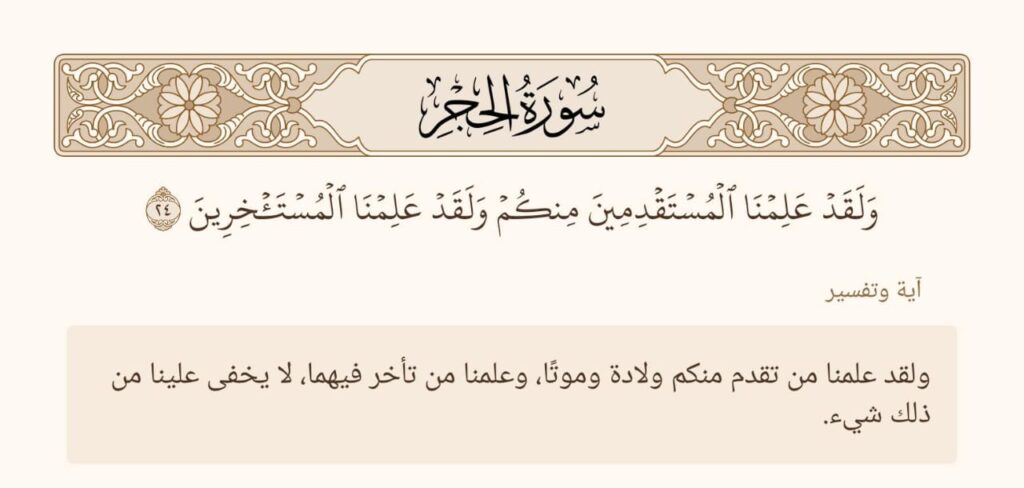 سُورَةُ الحِجْرِ
وَلَقَدْ عَلِمْنَا ٱلْمُسْتَقْدِمِينَ مِنكُمْ وَلَقَدْ عَلِمْنَا ٱلْمُسْتَـْٔخِرِينَ ٢٤
آية وتفسير
ولقد علمنا من تقدم منكم ولادة وموتًا، وعلمنا من تأخر فيهما، لا يخفى علينا من
ذلك شيء.